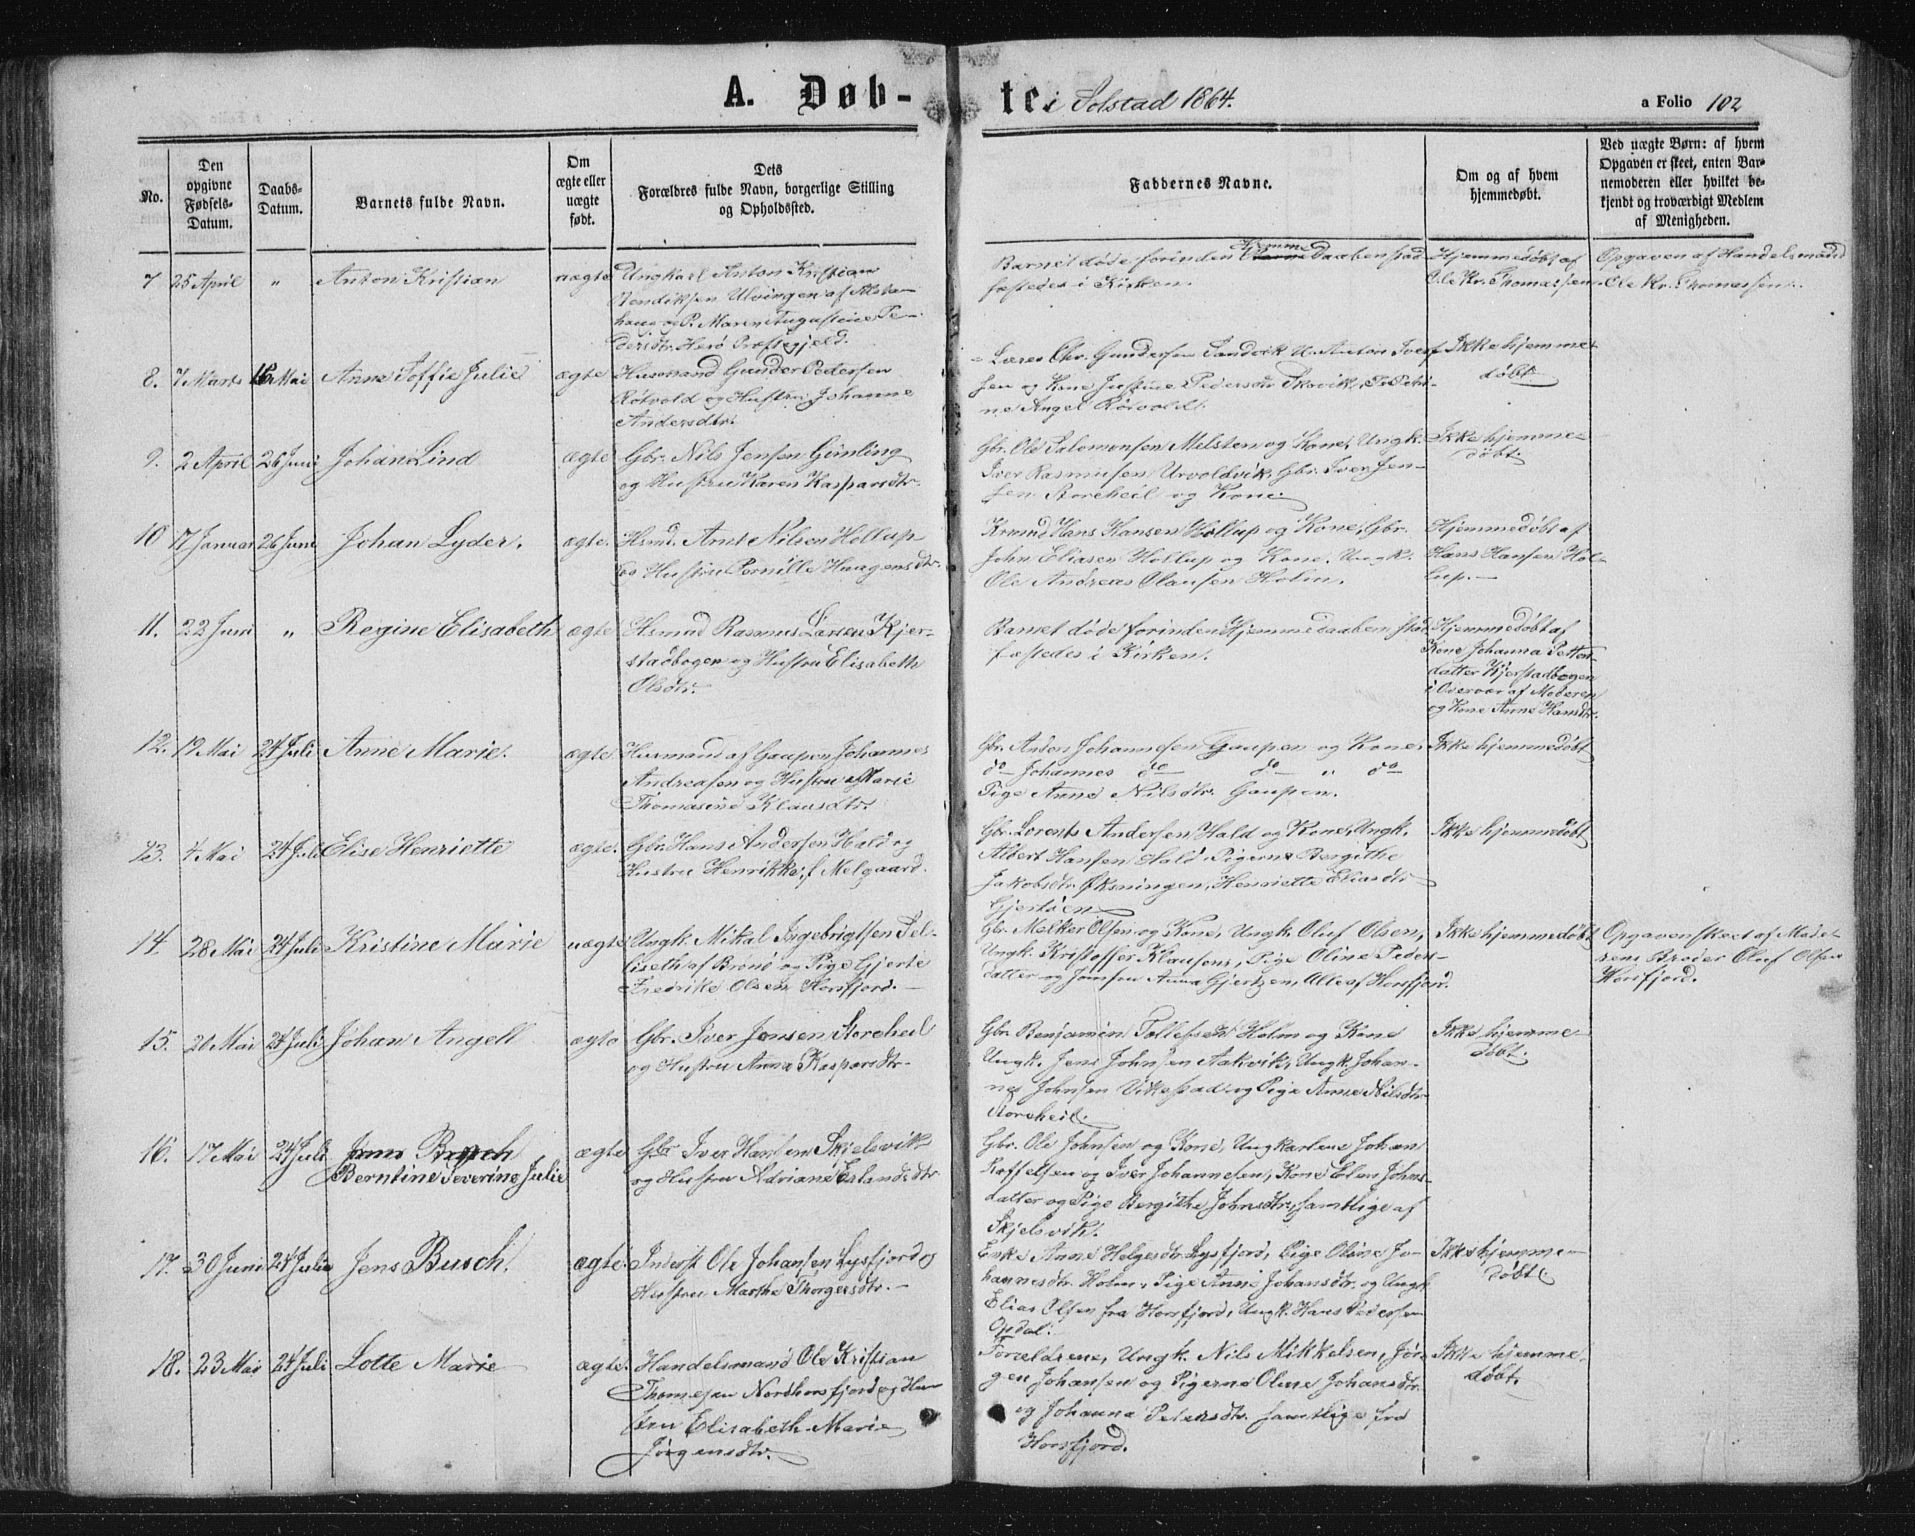 A. Døbte i Solstad 1864.
a Folio 102
No.
Den opgivne Fødsels-Datum.
Daabs-Datum.
Barnets fulde Navn.
Om ægte eller uægte født.
Dets Forældres fulde Navn, borgerlige Stilling og Opholdssted.
Faddernes Navne.
Om og af hvem hjemmedøbt.
Ved uægte Børn: af hvem Opgaven er skeet, enten Barnemoderen eller hvilket bekjendt og troværdigt Medlem af Menigheden.
7 25 April " Anton Kristian uægte
Ungkarl Anton Kristian
Hendiksen Ulvingen af Alsta-
haug og P. Maren Augustine Pe-
dersdtr. Herø Præstegjeld.
Barnet døde forinden Hjemmedaaben stad-
fæstedes i Kirken.
Hjemmedøbt af
Ole Kr. Thomassen.
Opgaven af Handelsmand
Ole Kr. Thomassen.
8. 7 Marts 16 Mai Anne Soffie Julie ægte
Husmand Gunder Pedersen
Rørvold og Hustru Johanne
Andersdtr.
Lærer Chr. Gundersen Sandvik U. Anton Iver-
sen og Kone Justine Pedersdtr Skovik, P. Petri-
ne Angel Rørvold.
Ikke hjemme-
døbt.
9. 2 April 26 Juni Johan Lind ægte
Gbr. Nils Jensen Grinling
og Hustru Karen Kaspersdtr.
Gbr. Ole Salomonsen Melsten og Kone, Ungk.
Iver Rasmusen Urvoldvik, Gbr. Iver Jen-
sen Storeheil og Kone.
Ikke hjemme-
døbt.
10 17 Januar 26 Juni Johan Lyder. ægte.
Hsmd. Arnt Nilsen Hollup
og Hustru Pernille Haagensdtr.
Hans Hansen Hollup og Kone, Gbr.
John Eliasen Hollup og Kone, Ungk.
Ole Andreas Olausen Holm.
Hjemmedøbt af
Hans Hansen Hol-
lup.
11. 22 Juni " Regine Elisabeth ægte
Hsmnd Rasmus Larsen Kjer-
stadbogen og Hustru Elisabeth
Olsdtr.
Barnet døde forinden Hjemmedaaben stad-
fæstedes i Kirken.
Hjemmedøbt af
Kone Johanna Petter-
datter Kjerstadbogen
i Overvær af Moderen
og Kone Anne Hansdtr.
12. 19 Mai 24 Juli Anne Marie. ægte.
Husmand af Gaupen Johannes
Andreasen og Hustru Marie
Thomasine Klausdtr.
Gbr. Anton Johannesen Gaupen og Kone,
do Johannes do do " do
Pige Anne Nilsdtr. Gaupen.
Ikke hjemmedøbt
13. 4 Mai 24 Juli Elise Henriette ægte.
Gbr. Hans Andersen Hald og
Hustru Henrikke f. Melgaard.
Gbr. Lorents Andersen Hald og Kone, Ungk.
Albert Hansen Hald, Pigerne Bergithe
Jakobsdtr. Øksningen, Henriette Eliasdtr
Gjertøen
Ikke hjemmedøbt
14. 28 Mai 24 Juli Kristine Marie uægte
Ungk. Mikal Ingebrigtsen Sel-
liseth af Brønø og Pige Gjerte
Fredrike Olsen Horsfjord.
Gbr. Melker Olsen og Kone, Ungk. Oluf Olsen,
Ungk. Kristoffer Klausen, Pige Oline Peders-
datter og Jomfru Anna Gjertzen, Alle af Horsfjord.
Ikke hjemmedøbt
Opgaven skeet af Mode-
rens Broder Oluf Olsen
Horsfjord.
15. 20 Mai 24 Juli Johan Angell ægte
Gbr. Iver Jensen Storeheil
og Hustru Anna Kaspersdtr.
Gbr. Benjamin Tollefsen Holm og Kone
Ungk. Jens Johnsen Aakvik, Ungk. Johan-
nes Johnsen Vikestad og Pige Anne Nilsdtr
Storeheil.
Ikke hjemme-
døbt.
16. 17 Mai 24 Juli Jens Busch
Berntine Severine Julie ægte
Gbr Iver Hansen Skjelsvik
og Hustru Adriane Erlandsdtr
Gbr. Ole Johnsen og Kone, Ungkarlene Johan
Toffelsen og Iver Johannesen, Kone Elen Johns-
datter og Pige Bergithe Johnsdtr, samtlige af
Skjelsvik.
17. 30 Juni 24 Juli Jens Busch. ægte.
Inderst Ole Johansen Lysfjord og
Hustru Marthe Thorgersdtr.
Enke Anne Helgesdtr. Lysfjord, Pige Oline Jo-
hannesdtr. Holm, Pige Anne Johansdtr. og Ungk
Elias Olsen fra Horsfjord, Ungk. Hans Pedersen
Opdal.
Ikke hjemme-
døbt
18. 23 Mai 24 Juli Lotte Marie ægte.
Handelsmand Ole Kristian
Thomesen Nordhorsfjord og Hu-
stru Elisabeth Marie
Jørgensdtr.
Forældrene, Ungk. Nils Mikkelsen, Jør-
gen Johansen og Pigerne Oline Johansdtr.
og Johanna Petersdtr. samtlige fra
Horsfjord.
Ikke hjemme-
døbt.